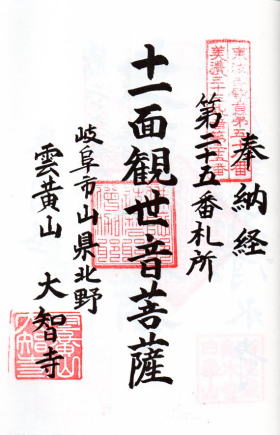 奉納経
第二十五番札所
十一面観世音菩薩
岐阜市山県北野
雲黄山　大智寺